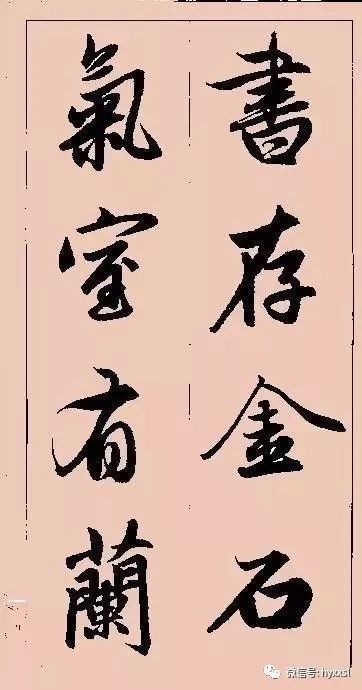 書存金石
氣室有蘭
微信号: hyxxsl